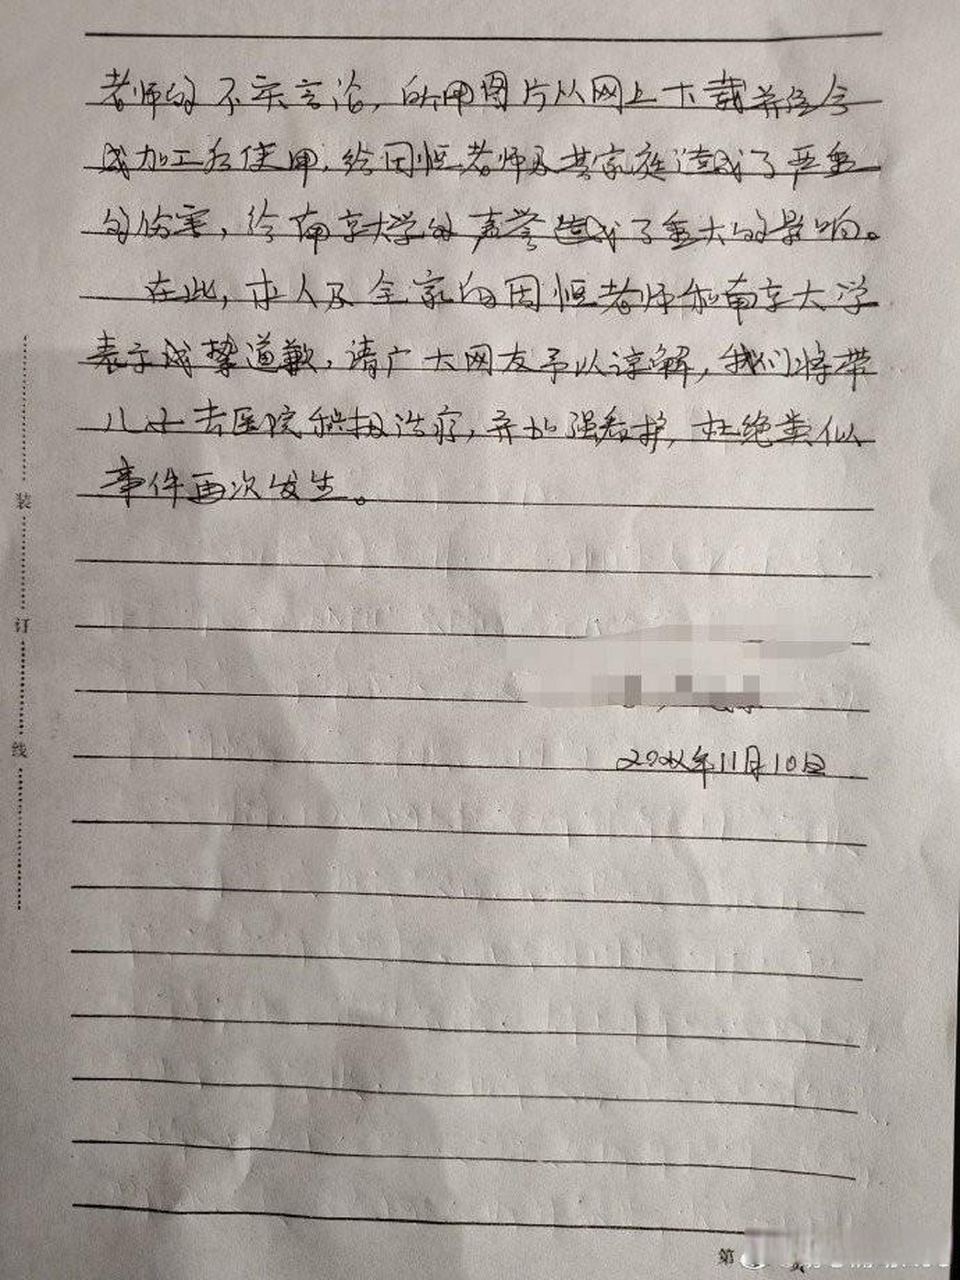 老师的不实言论，所用图片从网上下载并经合
成加工后使用，给田恒老师及其家庭造成了严重
的伤害，给南京大学的声誉造成了重大的影响。
在此，本人及全家向田恒老师和南京大学
表示诚挚道歉，请广大网友予以谅解，我们将带
儿子去医院积极治疗，并加强看护，杜绝类似
事件再次发生。
年11月10日
装
订
线
第
页